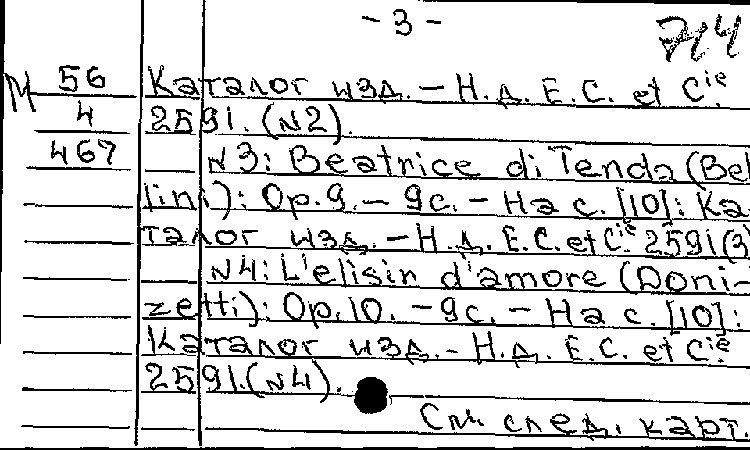 - 3 -
714
М 56
4
467
Каталог изд. – Н.д. Е.С. et Cie
2591. (N2).
N3: Beatrice di Tenda (Bel
lini): Op. 9. – 9с. – На с. [10]: Ка-
талог изд. – Н.д. Е.С. et Cie 2591(3)
N4: L'elisir d'amore (Doni-
zetti): Op. 10. – 9с. – На с. [10]:
Каталог изд. – Н.д. Е.С. et Cie
2591.(N4).
См. след. карт.